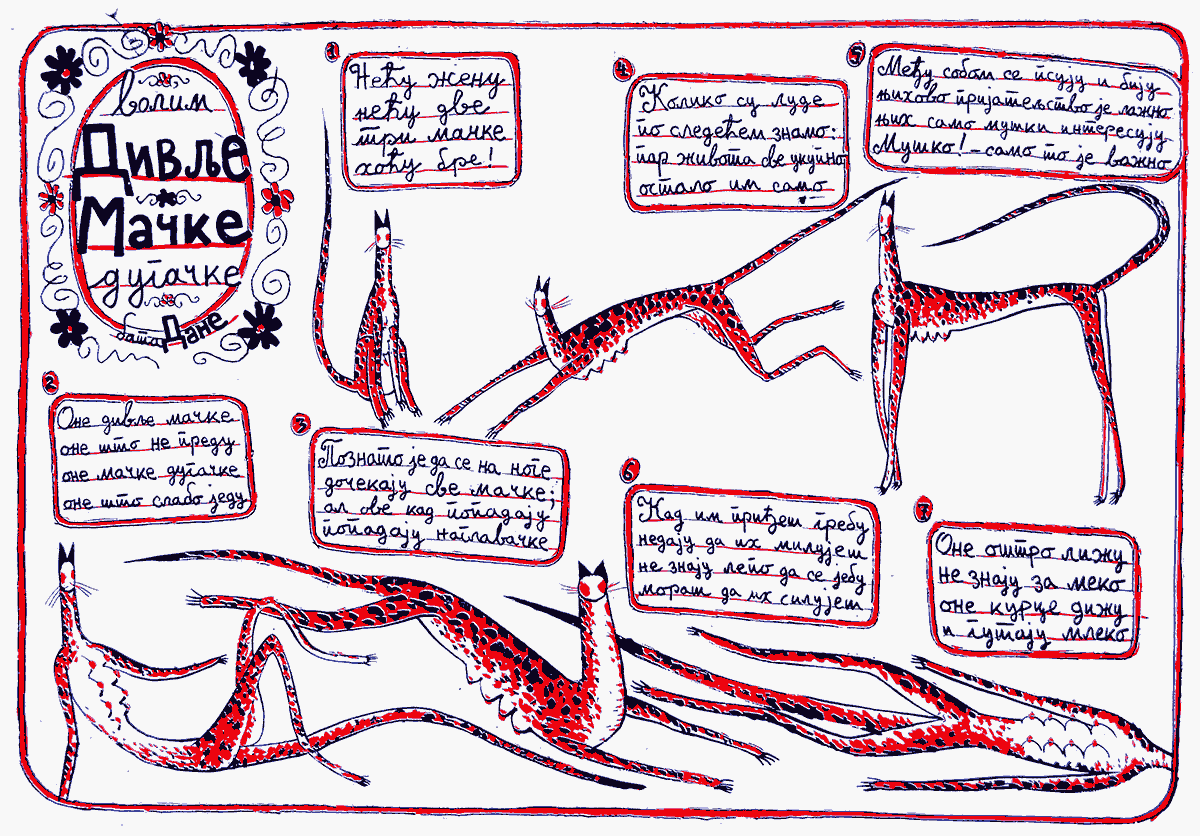 волим
Дивље
Мачке
дугачке
бата Дане
1
Нећу жену
нећу две
три мачке
хоћу бре!
2
Оне дивље мачке
оне што не преду
оне мачке дугачке
оне што слабо једу
3
Познато је да се на ноге
дочекају све мачке;
ал ове кад попадају
попадају наглавачке
4
Колико су луде
по следећем знамо:
пар живота све укупно
остало им само
5
Међу собом се псују и бију
њихово пријатељство је лажно
њих само мушки интересују
Мушко! – само то је важно
6
Кад им приђеш гребу
недају да их милујеш
не знају лепо да се јебу
мораш да их силујеш
7
Оне оштро лижу
не знају за меко
оне курце дижу
и гутају млеко